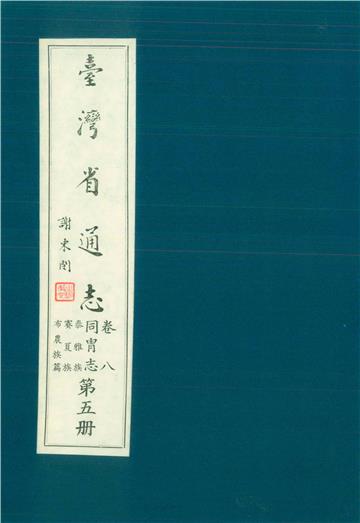 臺灣省通志
謝東閔
卷八
同胄志
泰雅族
賽夏族
布農族篇
第五册